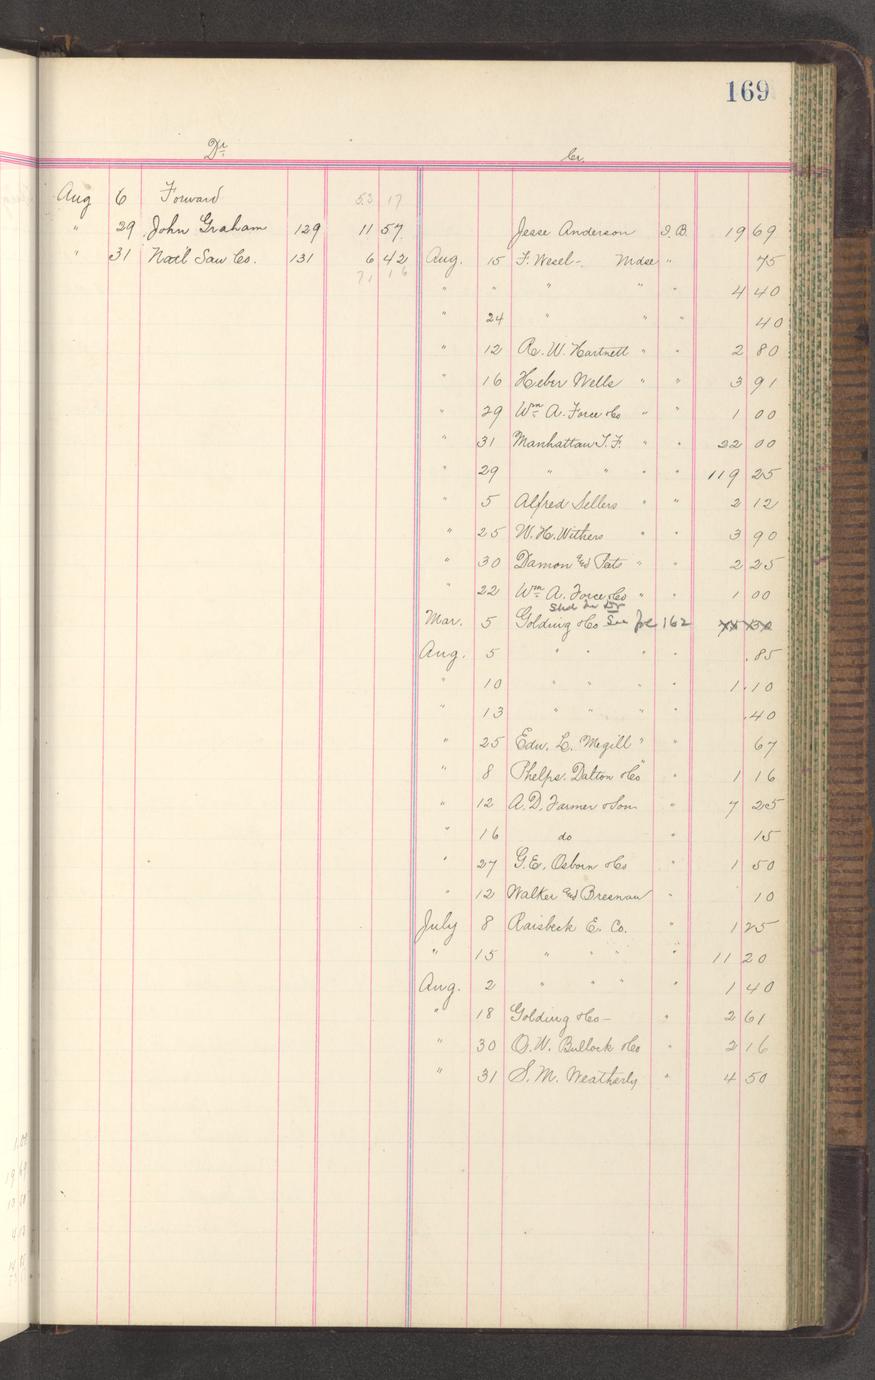 169
Dr Cr.
Aug 6 Forward 53 17
" 29 John Graham 129 11 57 Jesse Anderson I.B. 19 69
" 31 Nat'l Saw Co. 131 6 42 Aug. 15 F. Wesel - Mdse " 75
71 16
" " " " " 4 40
" 24 " " " 40
" 12 R. W. Hartnett " " 2 80
" 16 Heber Wells " " 3 91
" 29 Wm A. Force & Co " " 1 00
" 31 Manhattan T. F. " " 22 00
" 29 " " " " 119 25
" 5 Alfred Sellers " " 2 12
" 25 W. H. Withers " " 3 90
" 30 Damon and Peets " " 2 25
" 22 Wm A. Force & Co " " 1 00
Shd be Dr
Mar. 5 Golding & Co See 162
Aug. 5 " " " " .85
" 10 " " " " 1.10
" 13 " " " " .40
" 25 Edw. L. Megill " " 67
" 8 Phelps. Dalton & Co " " 1 16
" 12 A. D. Farmer & Son " 7 25
" 16 do " 15
" 27 G. E. Osborn & Co " 1 50
" 12 Walker and Bresnan " 10
July 8 Raisbeck E. Co. " 1 25
" 15 " " " " 11 20
Aug. 2 " " " " 1 40
" 18 Golding & Co - " 2 61
" 30 O. W. Bullock & Co " 2 16
" 31 S. M. Weatherly " 4 50